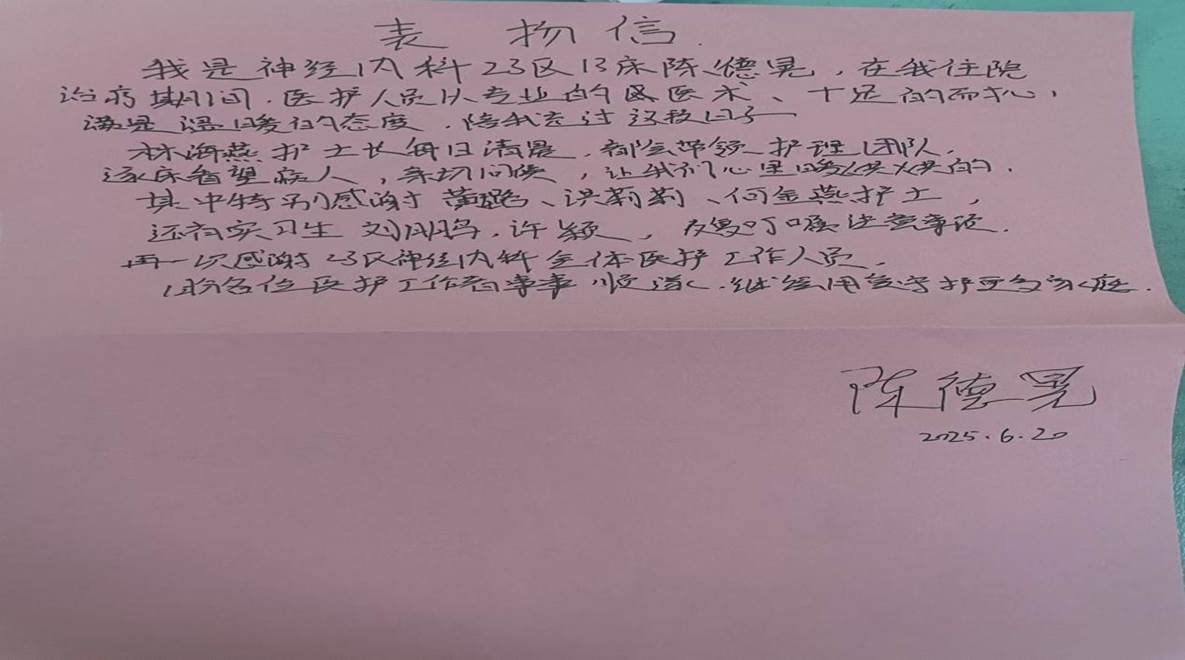 表扬信
我是神经内科23区13床陈德晃，在我住院
治疗期间，医护人员以专业的医术、十足的耐心，
满是温暖的态度，陪我走过这段日子
林海燕护士长每日清晨，都会带领护理团队，
逐床看望病人，亲切问候，让我们心里暖烘烘的．
其中特别感谢黄璐、洪莉莉、何金燕护士，
还有实习生刘朋鸟，许颖，反复叮嘱注意事项．
再一次感谢23区神经内科全体医护工作人员，
盼各位医护工作者事事顺遂，继续用爱守护更多家庭．
陈德晃
2025.6.20